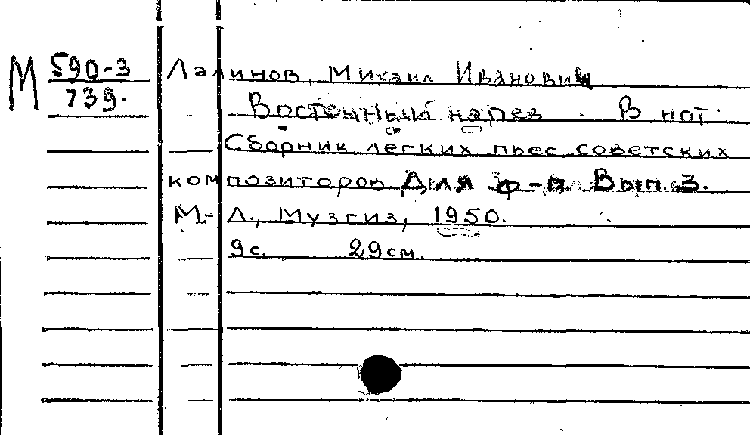 М 590-3 Лалинов, Михаил Иванович
739.
Восточный напев. В нот.
Сборник легких пьес советских
композиторов Для ф-п. Вып. 3.
М.-Л., Музгиз, 1950.
9с. 29см.